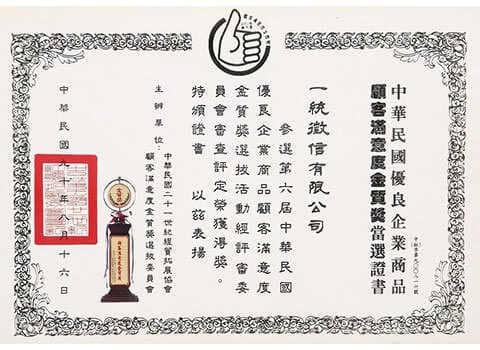 中華民國優良企業商品
顧客滿意度金質獎當選證書
一統徵信有限公司
參選第六屆中華民國
優良企業商品顧客滿意度
金質獎選拔活動經評審委
員會審查評定榮獲得獎。
特頒證書 以茲表揚
主辦單位：
中華民國二十一世紀經貿拓展協會
顧客滿意度金質獎選拔委員會
中華民國九十年八月十六日